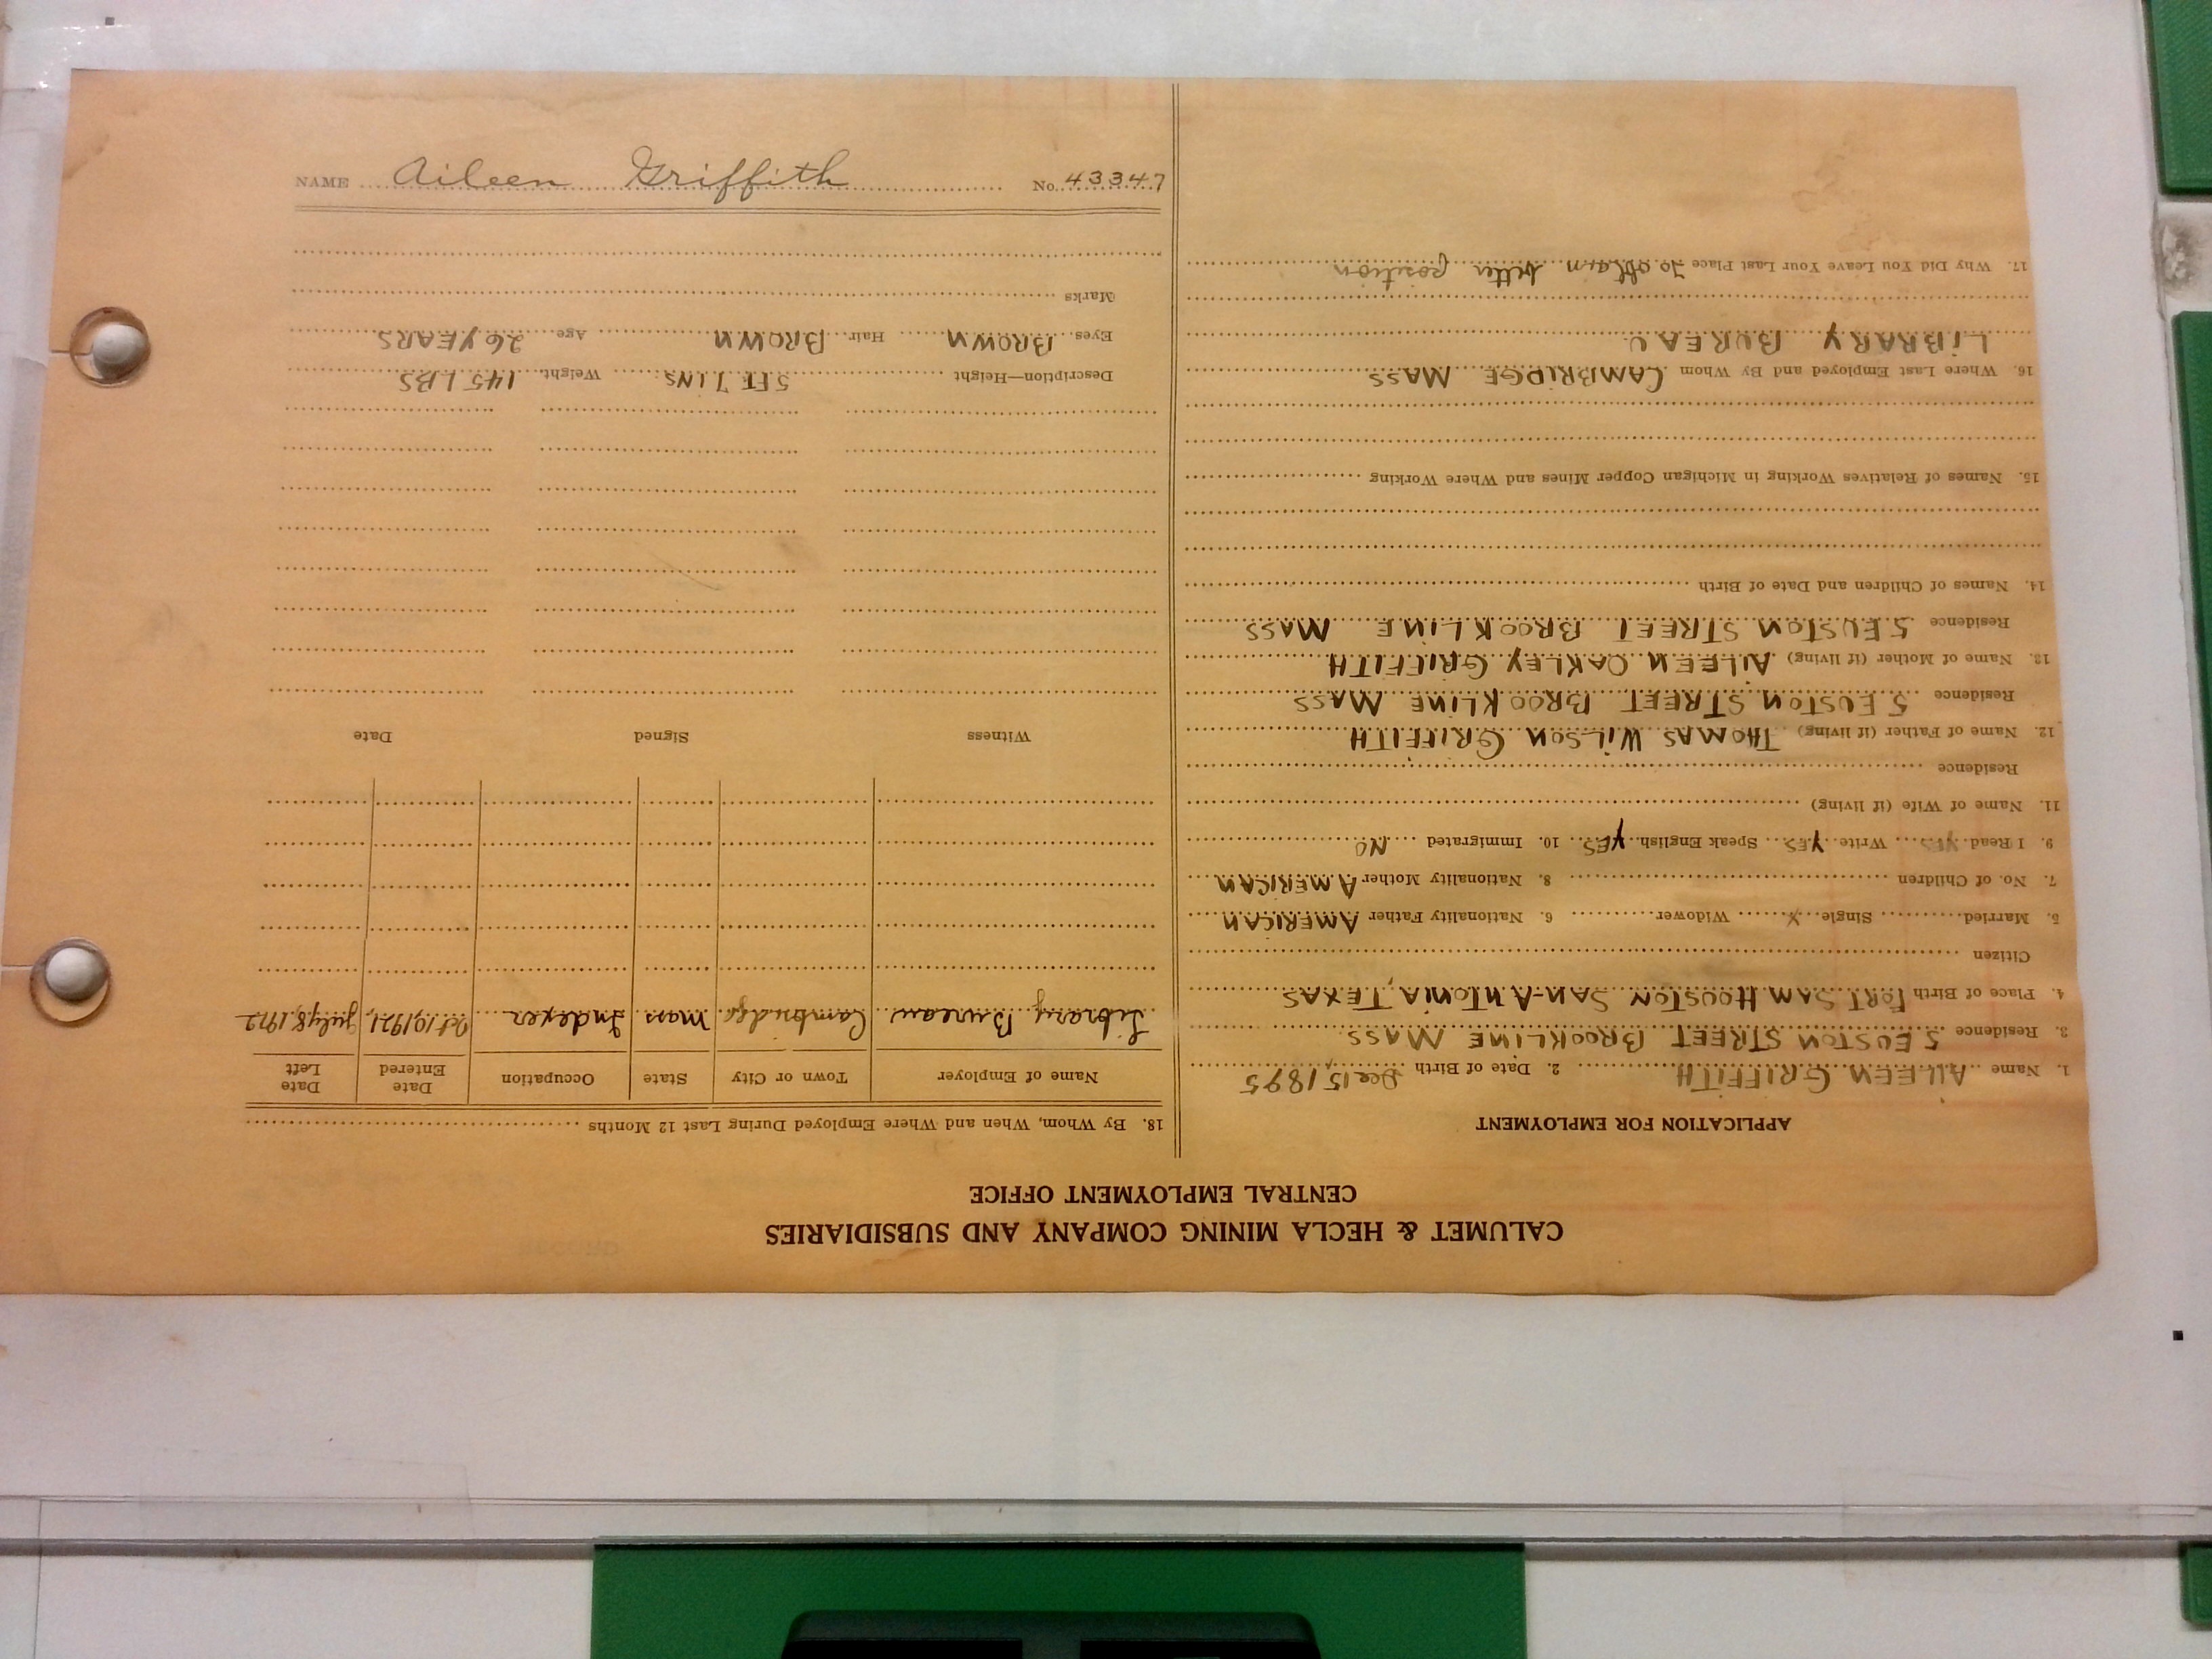 CALUMET & HECLA MINING COMPANY AND SUBSIDIARIES
CENTRAL EMPLOYMENT OFFICE
APPLICATION FOR EMPLOYMENT
1. Name AILEEN GRIFFITH 2. Date of Birth Dec 15, 1895
3. Residence 5 EUSTON STREET BROOKLINE MASS.
4. Place of Birth FORT SAM HOUSTON SAN-ANTONIA, TEXAS
Citizen
5. Married Single X Widower 6. Nationality Father AMERICAN
7. No. of Children 8. Nationality Mother AMERICAN
9. I Read YES Write YES Speak English YES 10. Immigrated NO
11. Name of Wife (if living)
Residence
12. Name of Father (if living) THOMAS WILSON GRIFFITH
Residence 5 EUSTON STREET BROOKLINE MASS
13. Name of Mother (if living) AILEEN OAKLEY GRIFFITH
Residence 5 EUSTON STREET BROOKLINE MASS
14. Names of Children and Date of Birth
15. Names of Relatives Working in Michigan Copper Mines and Where Working
16. Where Last Employed and By Whom CAMBRIDGE MASS
LIBRARY BUREAU
17. Why Did You Leave Your Last Place To obtain better position
18. By Whom, When and Where Employed During Last 12 Months
Name of Employer Town or City State Occupation Date Entered Date Left
Library Bureau Cambridge Mass Indexer Oct 10, 1921, July 8, 1922
Witness Signed Date
Description—Height 5 FT 7 INS. Weight 145 LBS
Eyes BROWN Hair BROWN Age 26 YEARS
Marks
NAME Aileen Griffith No. 43347